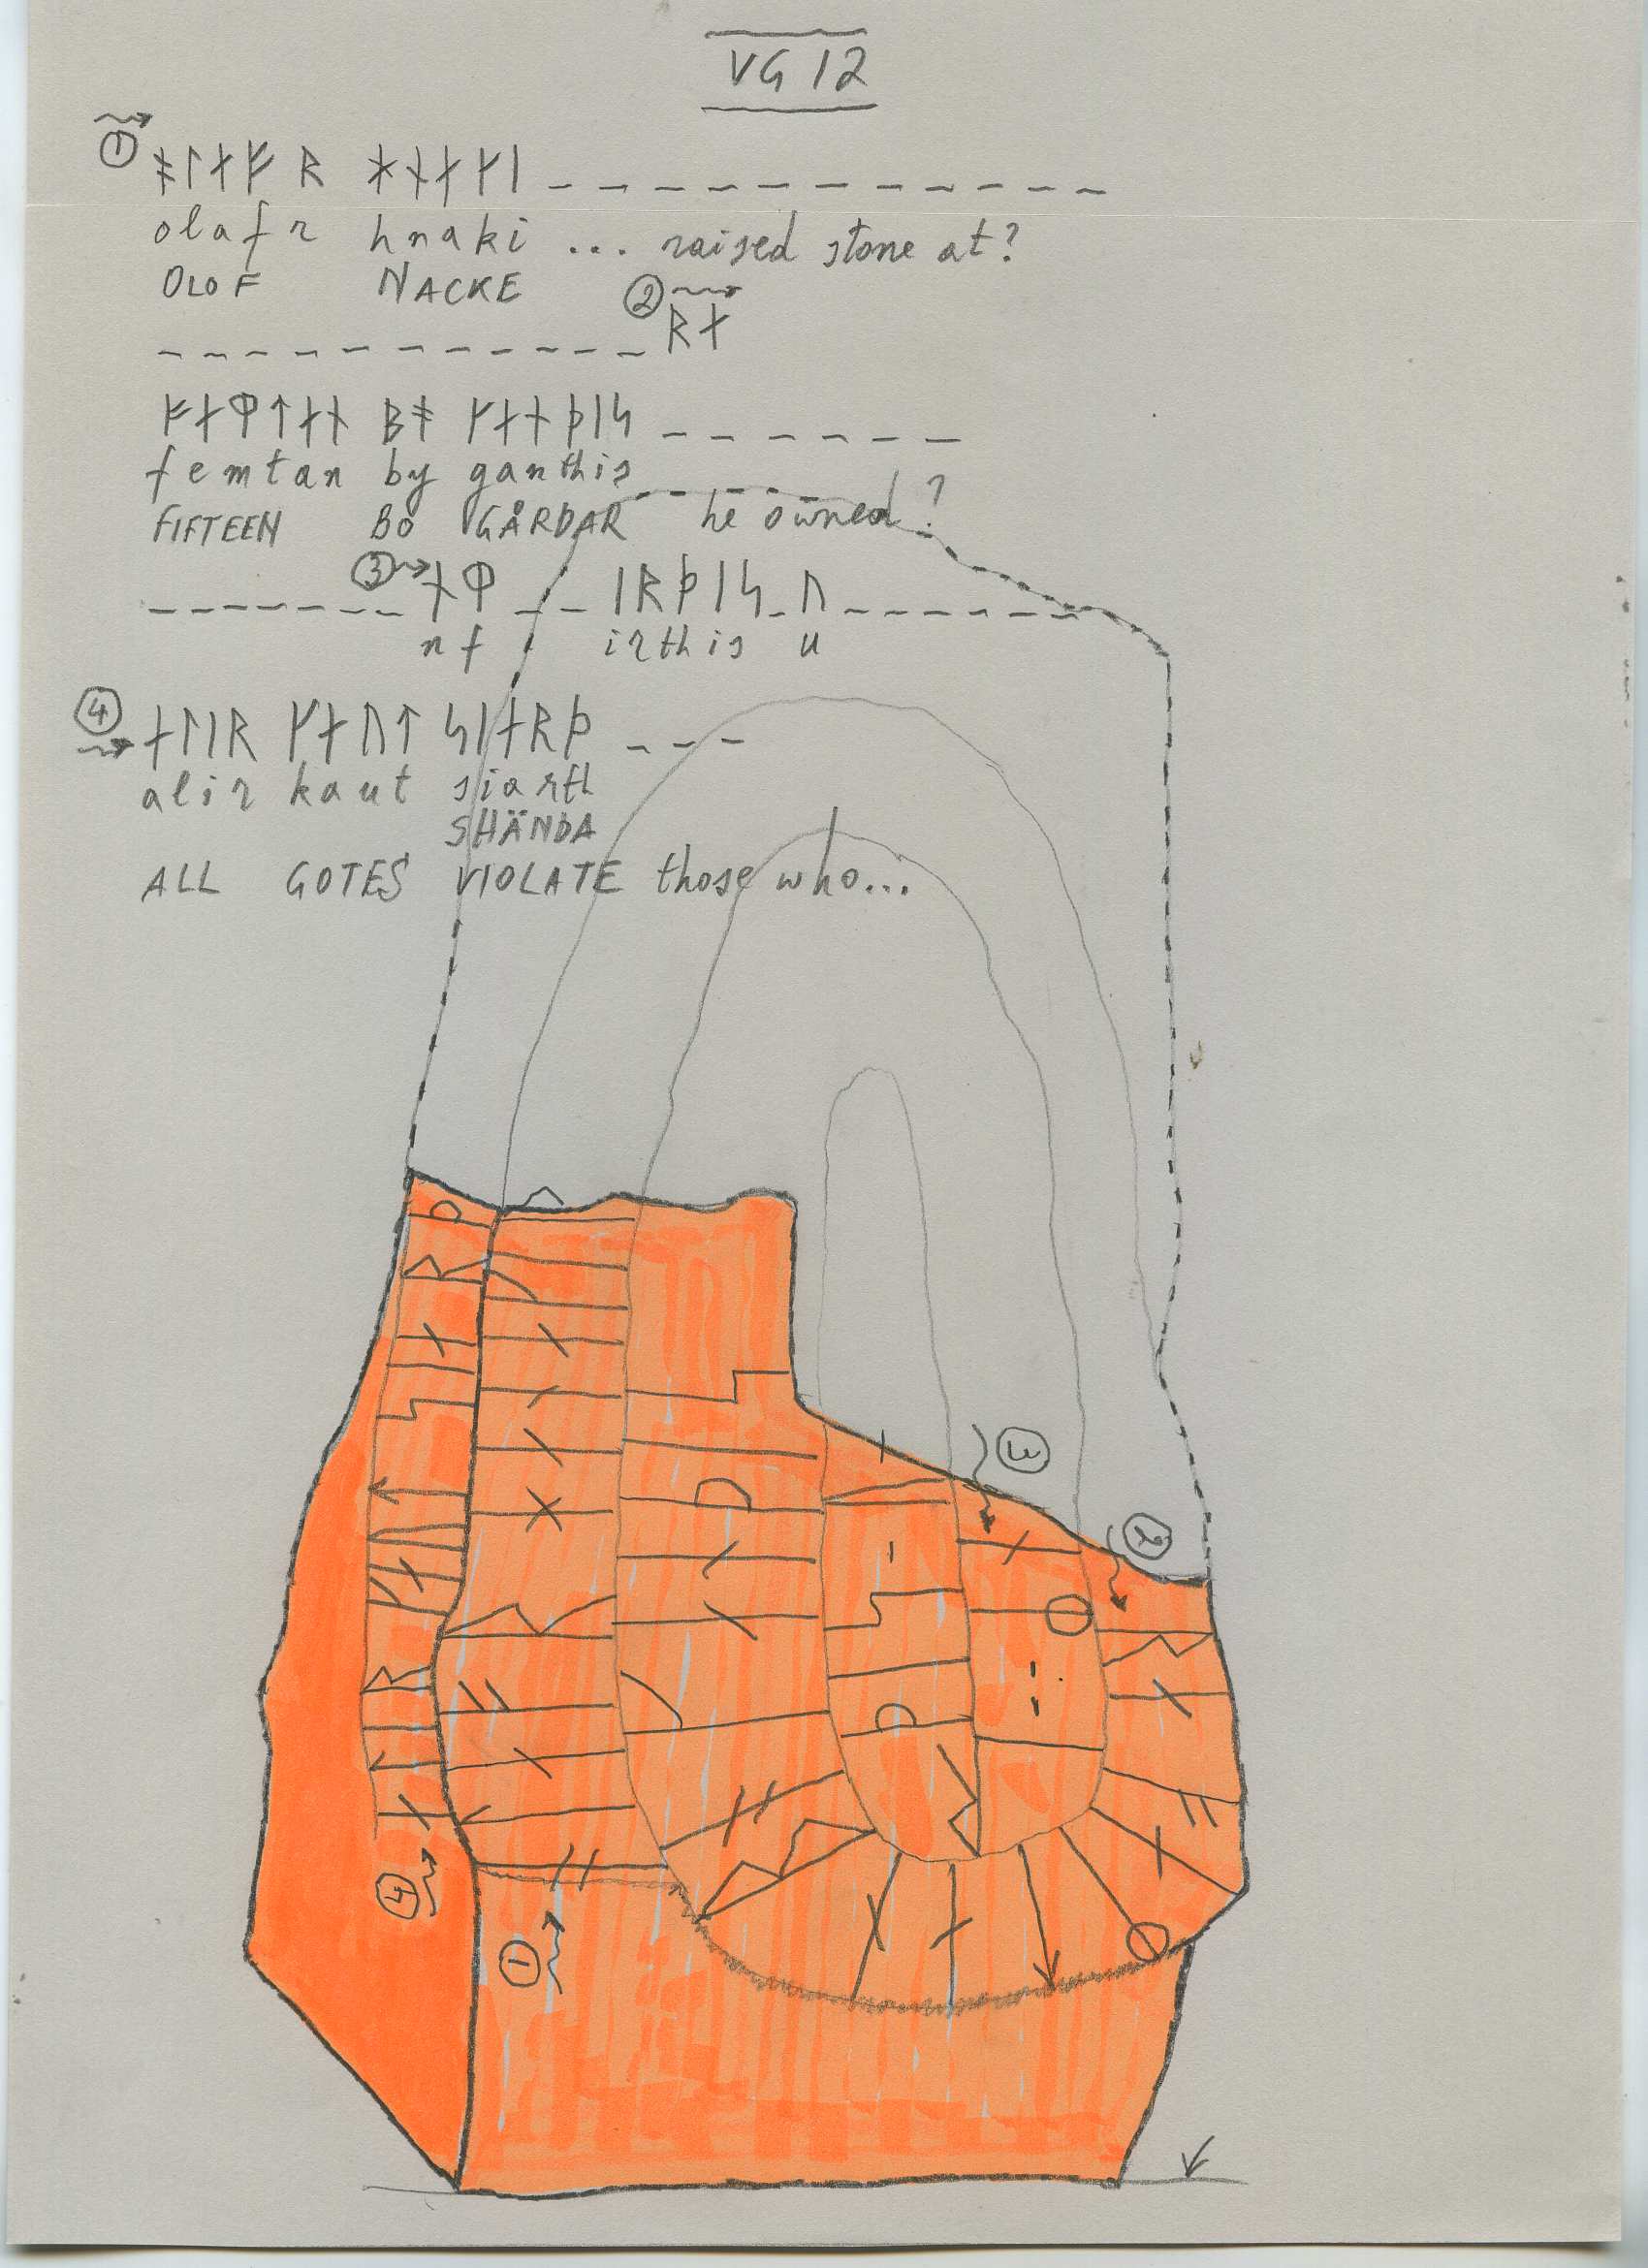 VG 12
① ᚬᛚᛅᚠᚱ ᚼᚾᛅᚴᛁ _ _ _ _ _ _ _ _ _ _ _ _
olafr hnaki ... raised stone at?
OLOF NACKE
_ _ _ _ _ _ _ _ _ _ _ ② ᚱᛅ
ᚠᛅᛘᛏᛅᚾ ᛒᚬ ᚴᛅᚾᚦᛁᛋ _ _ _ _ _ _
femtan by ganthis
FIFTEEN BO GÅRDAR he owned?
_ _ _ _ _ _ ③ ᚾᛘ _ _ ᛁᚱᚦᛁᛋ _ ᚢ _ _ _ _ _ _
nf irthis u
④ ᛅᛚᛁᚱ ᚴᛅᚢᛏ ᛋᛁᛅᚱᚦ _ _ _
alir kaut siarth
SHÄNDA
ALL GOTES VIOLATE those who...
③
②
④
①